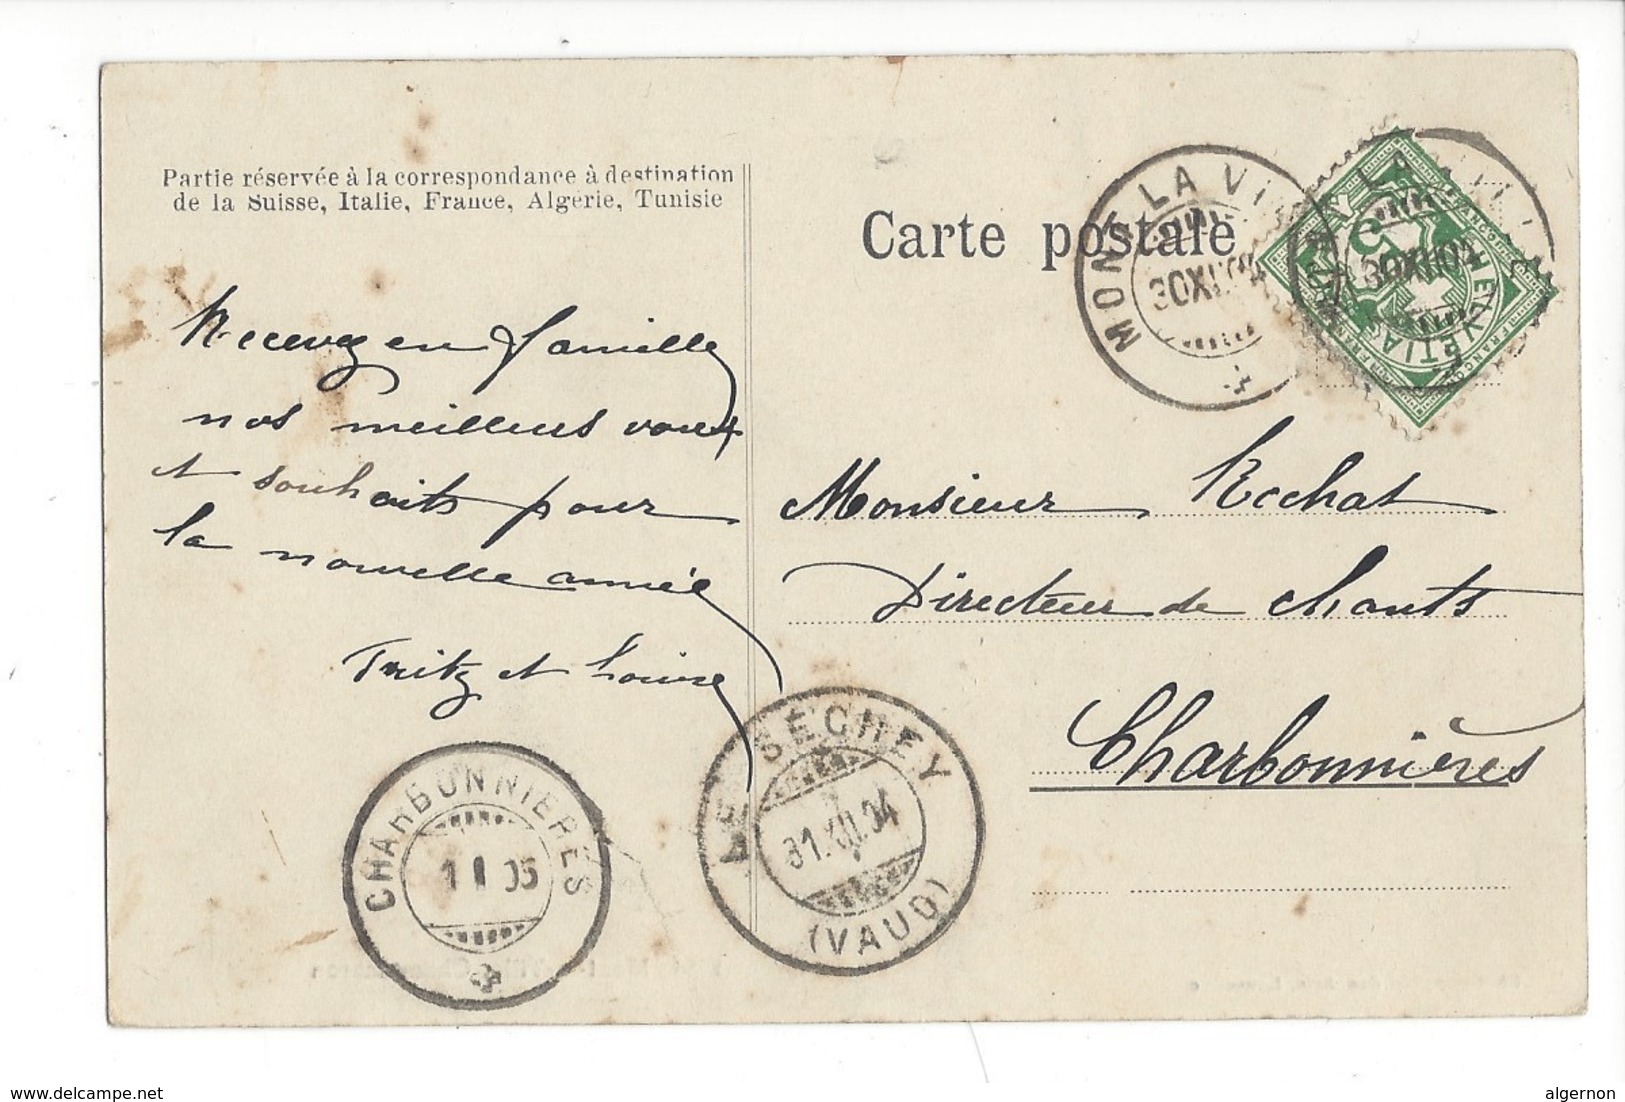 Partie réservée à la correspondance à destination
de la Suisse, Italie, France, Algérie, Tunisie
Carte postale
MONT LA VI
30 XII 04
30 XII 04
HELVETIA
FRANCO
Recevez en famille
nos meilleurs voeux
et souhaits pour
la nouvelle année
Fritz et Louise
Monsieur Rochat
Directeur de chants
Charbonnières
LE SÉCHEY
31.XII.04
(VAUD)
CHARBONNIÈRES
1 I 05
www.delcampe.net
algernon